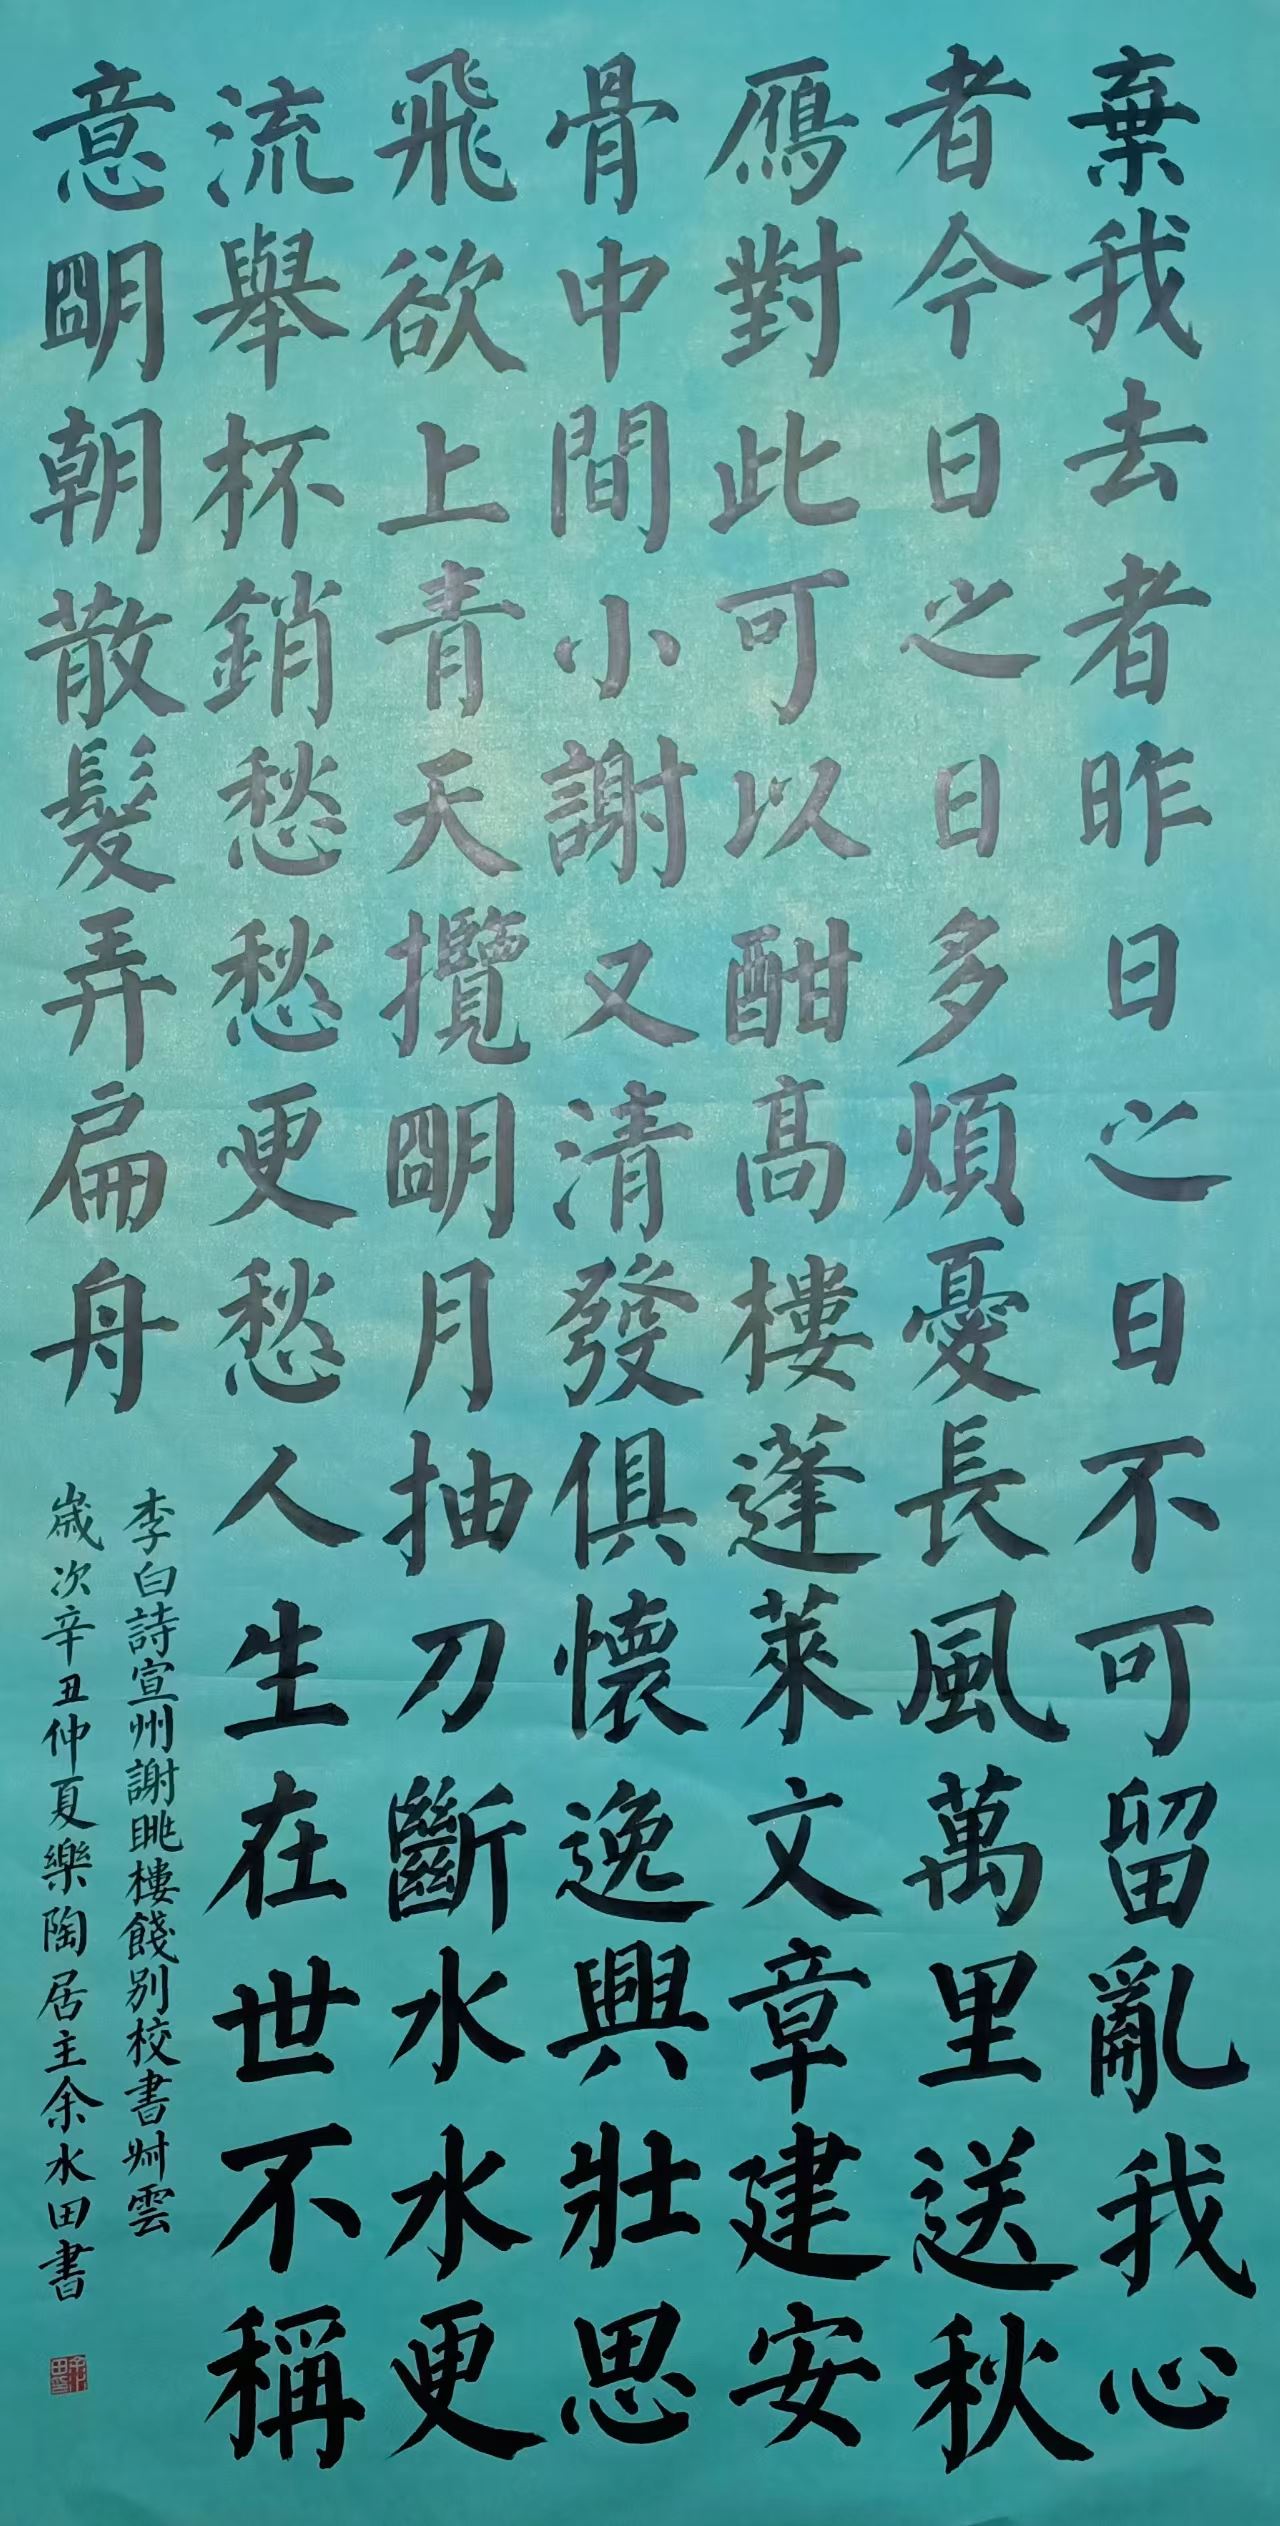 棄我去者昨日之日不可留亂我心
者今日之日多煩憂長風萬里送秋
鴈對此可以酣高樓蓬萊文章建安
骨中間小謝又清發俱懷逸興壯思
飛欲上青天攬朙月抽刀斷水水更
流舉杯銷愁愁更愁人生在世不稱
意朙朝散髮弄扁舟
李白詩宣州謝眺樓餞别校書叔雲
歲次辛丑仲夏樂陶居主余水田書